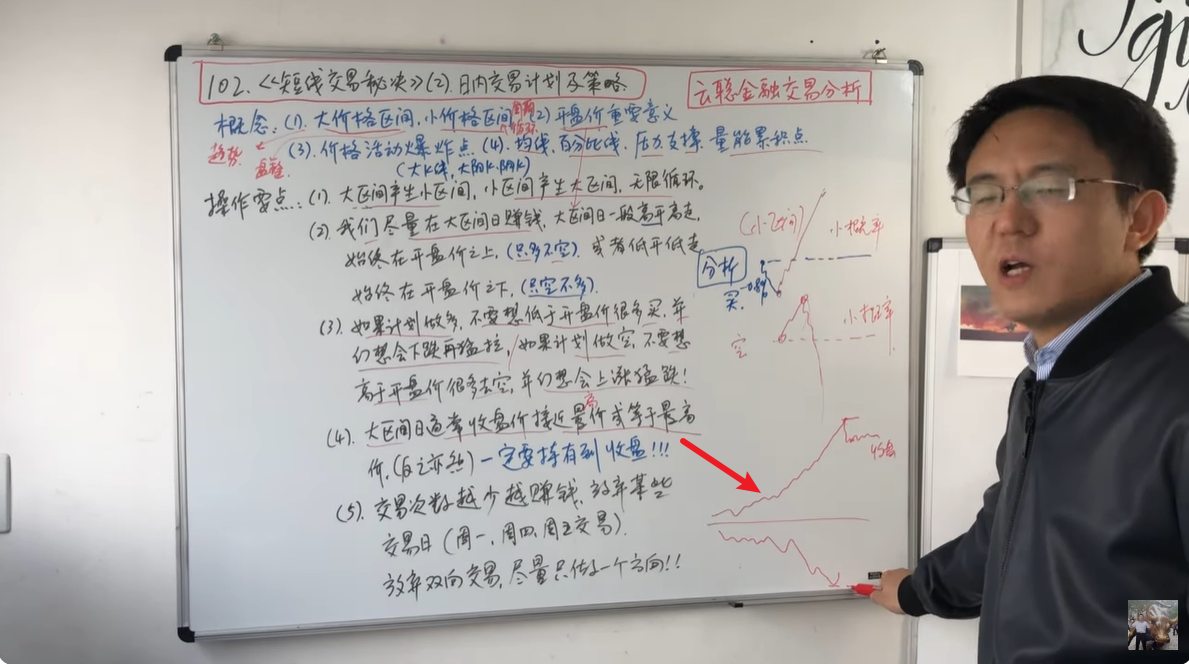 102.《短线交易秘决》(2).日内交易计划及策略
云聪金融交易分析
概念:(1).大价格区间,小价格区间 周期循环 (2)开盘价重要意义
趋势
(3).价格活动爆炸点.(4).均线,百分比线,压力支撑,量能累积点.
(大K线,大阴K.阴K)
操作要点:(1).大区间产生小区间,小区间产生大区间,无限循环。
(2).我们尽量在大区间日赚钱,大区间日一般高开高走,
始终在开盘价之上,(只多不空).或者低开低走
始终在开盘价之下,(只空不多).
(3).如果计划做多,不要想低于开盘价很多买,并
幻想会下跌再猛拉,如果计划做空,不要想
高于开盘价很多去空,并幻想会上涨猛跌!
(4).大区间日通常收盘价接近最高价或等于最高
价.(反之亦然)一定要持有到收盘!!!
(5).交易次数越少越赚钱,放弃某些
交易日(周一,周四,周五交易).
放弃双向交易,尽量只做一个方向!!
(小区间)
小概率
分析
买.-0.8%
空
小概率